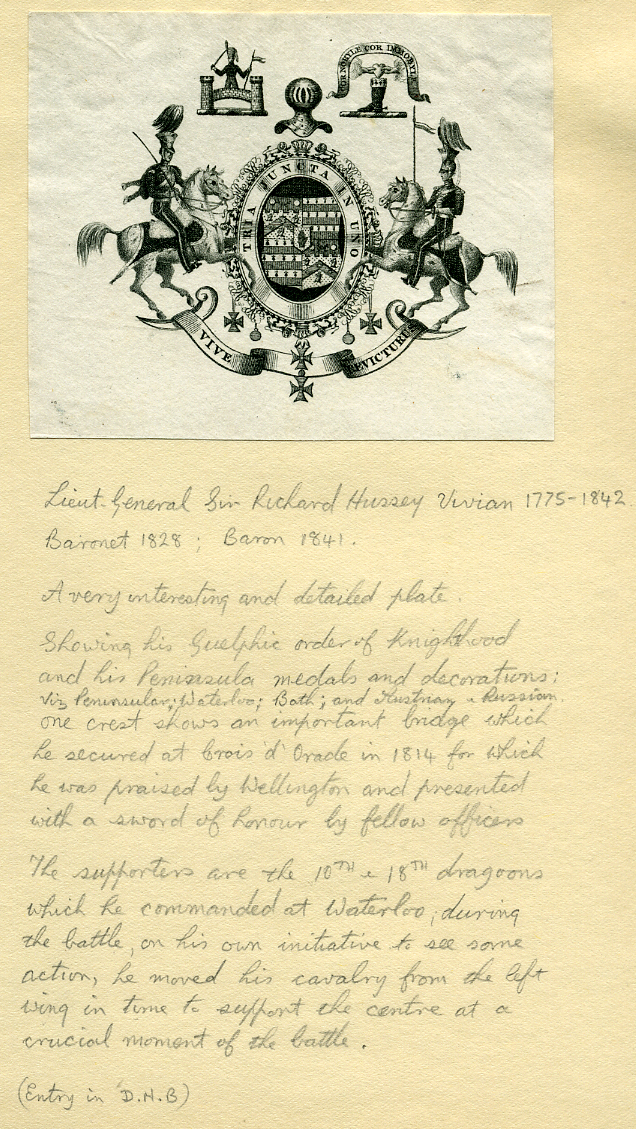 COR NOBYLE COR IMMOBYLE
TRIA JUNCTA IN UNO
VIVE REVICTURUS
Lieut-General Sir Richard Hussey Vivian 1775-1842.
Baronet 1828 ; Baron 1841.
A very interesting and detailed plate.
Showing his Guelphic order of Knighthood
and his Peninsula medals and decorations:
Viz Peninsular; Waterloo; Bath; and Austrian & Russian.
one crest shows an important bridge which
he secured at Crois 'd' Orade in 1814 for which
he was praised by Wellington and presented
with a sword of honour by fellow officers
The supporters are the 10TH & 18TH dragoons
which he commanded at Waterloo; during
the battle, on his own initiative to see some
action, he moved his cavalry from the left
wing in time to support the centre at a
crucial moment of the battle.
(Entry in D.N.B)